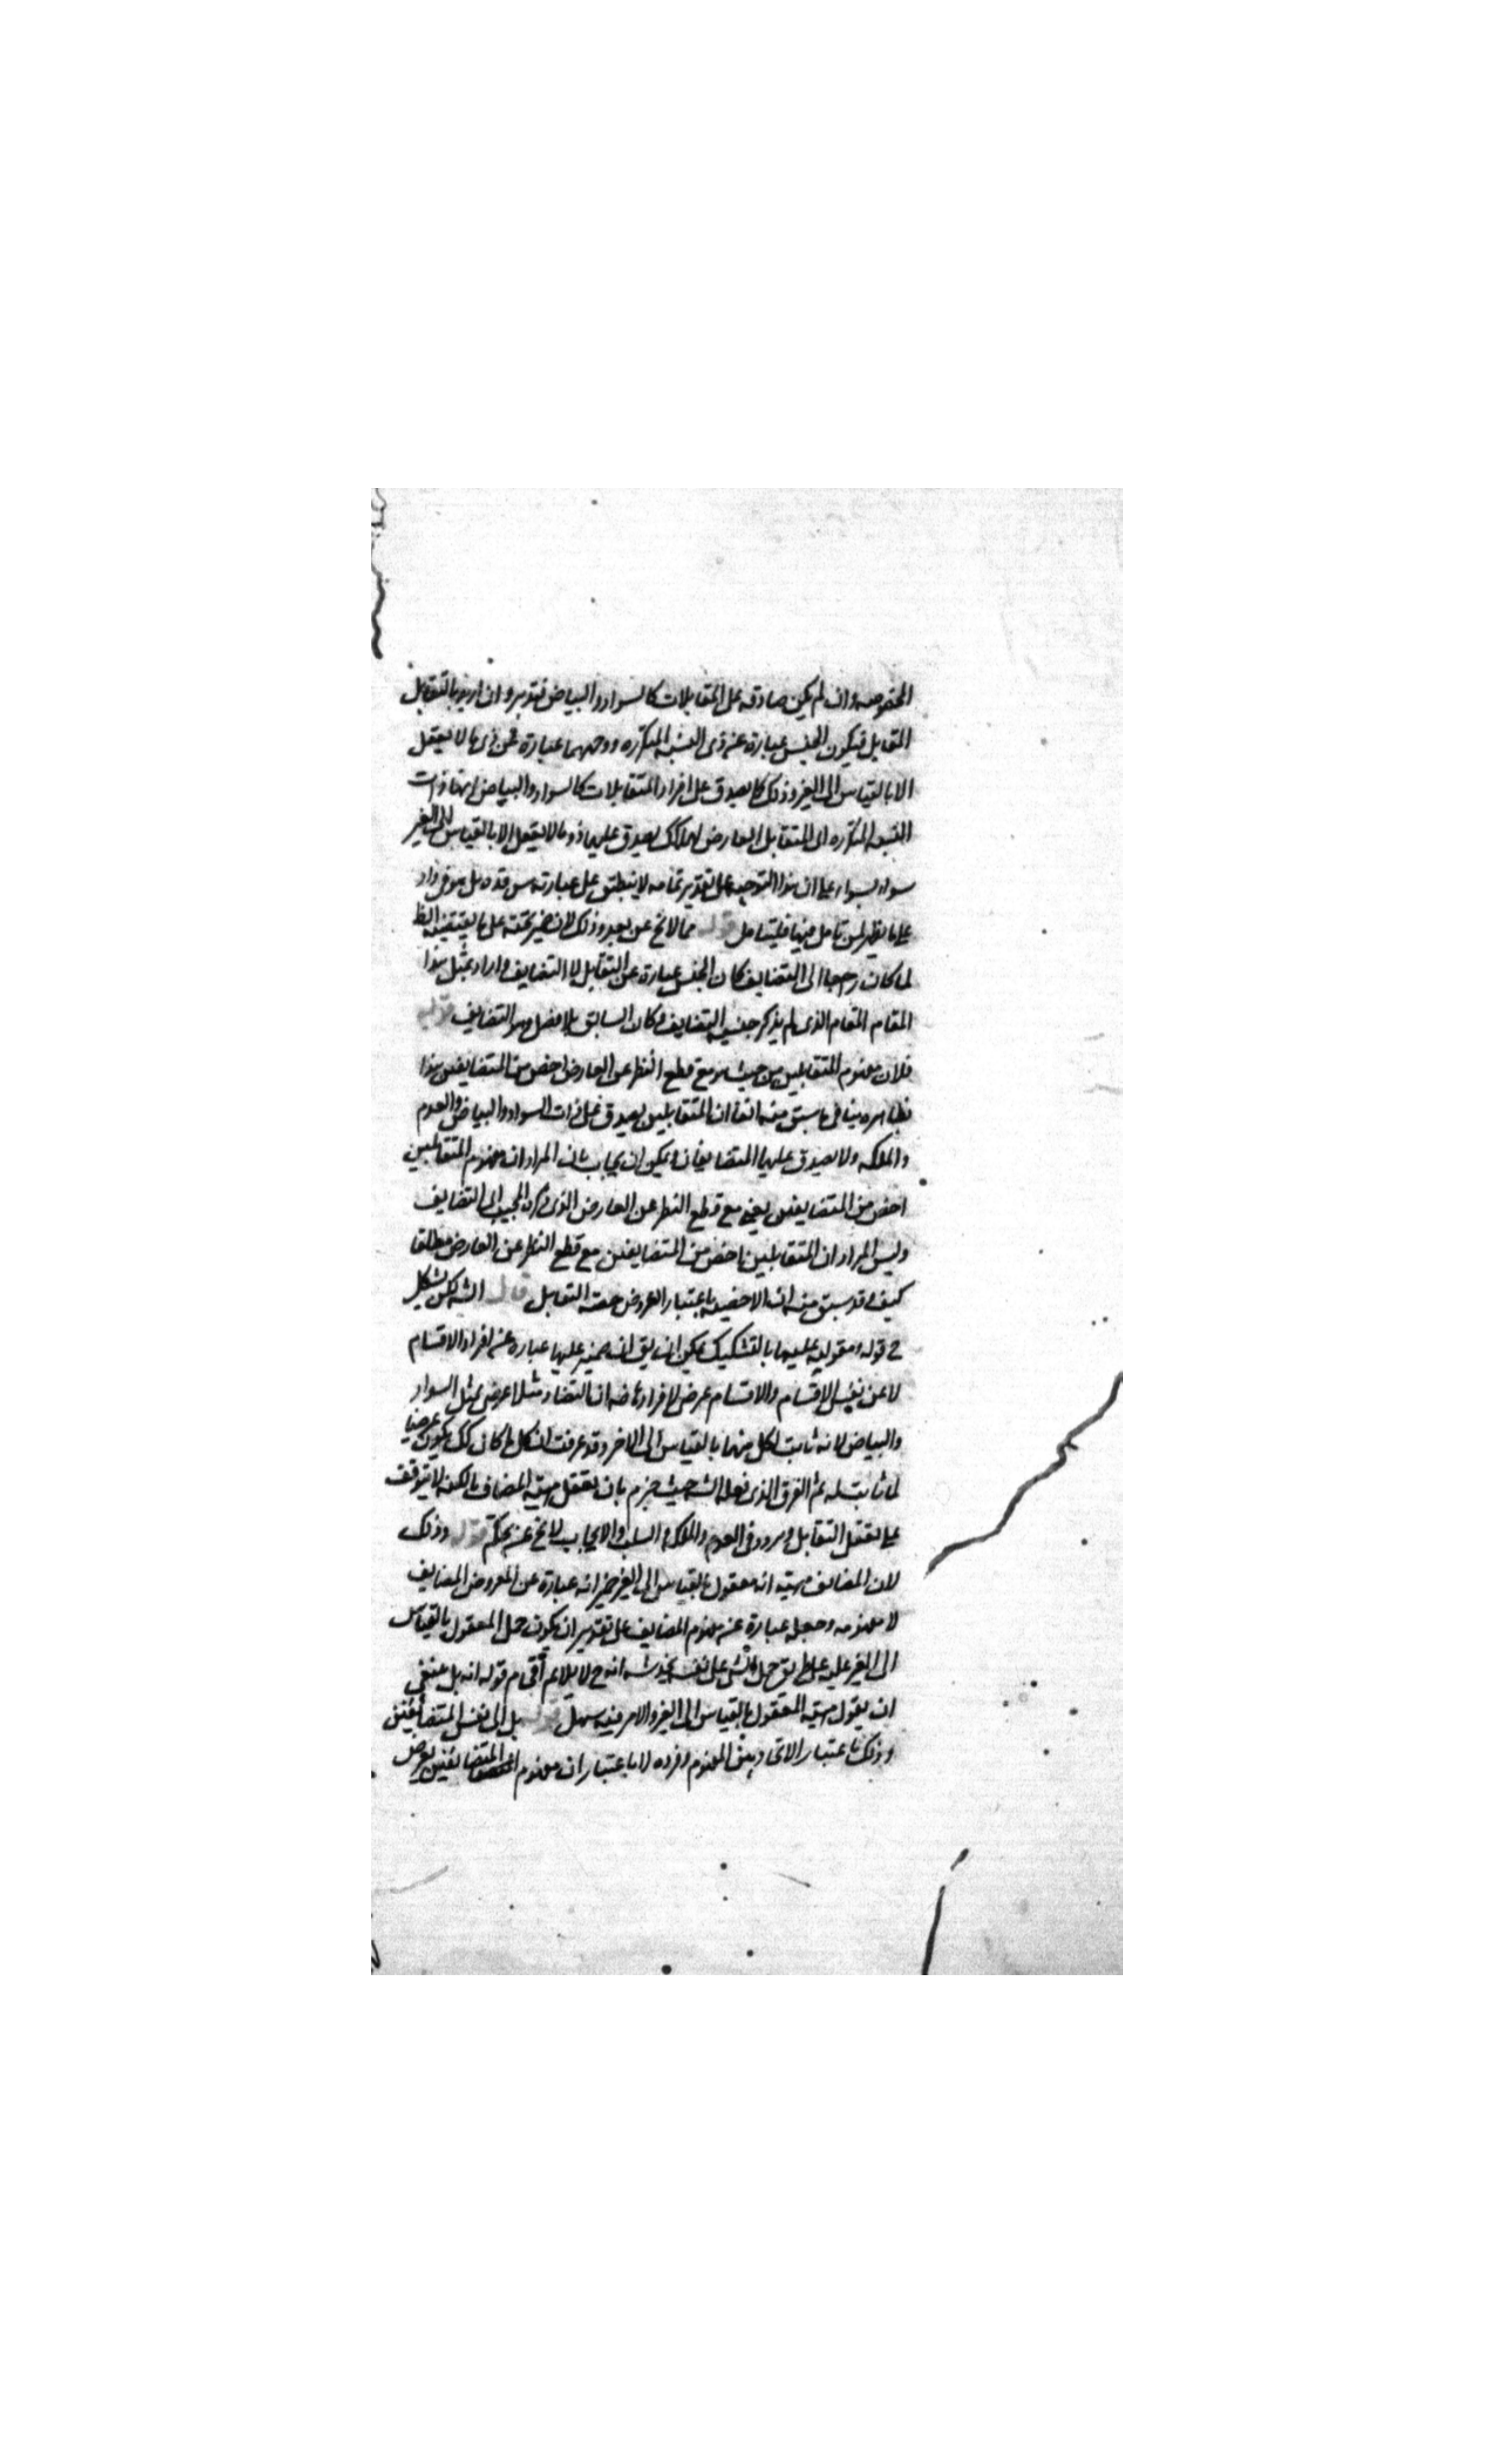 المخصوصه وان لم يكن صادقه على المتقابلات كالسواد والبياض فتدبر وان اريد بالتقابل
المتقابل فيكون الجنس عبارة عن ذى النسبه المتكرره ووجههما عبارة عن ذى ما لا يعقل
الا بالقياس الى الغير وذلك كما يصدق على افراد المتقابلات كالسواد والبياض انها ذات
النسبه المتكرره اى المتقابل العارض لها كك يصدق عليها ذو ما لا يعقل الا بالقياس الى الغير
سواد بسواد على ان هذا التوجيه على تقدير تمامه لا ينطبق على عبارته س قده بل هو فى واد
على ما يظهر لمن تامل فيها فليتامل قوله مما لا يخ عن بعد وذلك لان ضمير تحته على ما يقتضيه الظ
لما كان راجعا الى التضايف كان الجنس عبارة عن التقابل لا التضايف واراد بمثل هذا
المقام المقام الذى لم يذكر جنسيه التضايف وكان السابق بلا فصل هو التضايف قوله
فلان مفهوم المتقابلين من حيث هو مع قطع النظر عن العارض اخص من المتضايفين هذا
بظاهره ينافى ما سبق منه انفا ان المتقابلين يصدق على ذات السواد والبياض والعدم
والملكه ولا يصدق عليها المتضايفان ويمكن ان يجاب بان المراد ان مفهوم المتقابلين
اخص من المتضايفين يعنى مع قطع النظر عن العارض الذى ذكره المجيب اى التضايف
وليس المراد ان المتقابلين اخص من المتضايفين مع قطع النظر عن العارض مطلقا
كيف وقد سبق منه ان الاخصيه باعتبار العروض حصة التقابل قال الشه لكن يشكل
ح قوله ومقوليه عليها بالتشكيك يمكن ان يق ان ضمير عليها عباره عن افراد الاقسام
لا عن نفس الاقسام والاقسام عرض لافرادها ضه ان التضاد مثلا عرض لمثل السواد
والبياض لانه ثابت لكل منهما بالقياس الى الاخر وقد عرفت ان كل ما كان كك يكون عرضيا
لما ثابت له ثم الفرق الذى فعله الشه حيث جزم بان تعقل مهية المضاف بالكنه لا يتوقف
على تعقل التقابل وردد فى العدم والملكه والسلب والايجاب لا يخ عن تحكم قوله وذلك
لان المضايف مهيته انه معقول بالقياس الى الغير ضمير انه عبارة عن المعروض المضايف
لا مفهومه وجعله عبارة عن مفهوم المضايف على تقدير ان يكون حمل المعقول بالقياس
الى الغير عليه على طريق حمل الشى على نفسه يخدشه انه ح لا يلايم اقحام قوله انه بل ينبغى
ان يقول مهيته المعقول بالقياس الى الغير والامر فيه سهل قوله بل الى نفس المتضائفين
وذلك باعتبار الاتحاد بين المفهوم وفرده لا باعتبار ان مفهوم المتضائفين يعرض